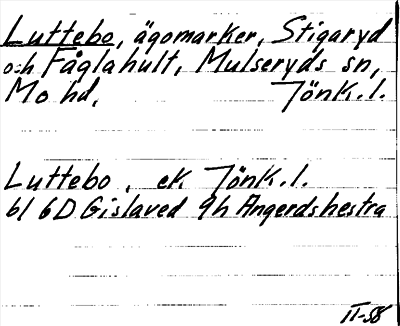 Luttebo, ägomarker, Stigaryd
och Fåglahult, Mulseryds sn,
Mo hd, Jönk.l.
Luttebo, ek Jönk.l.
bl 6D Gislaved 9h Angerdshestra
II-58